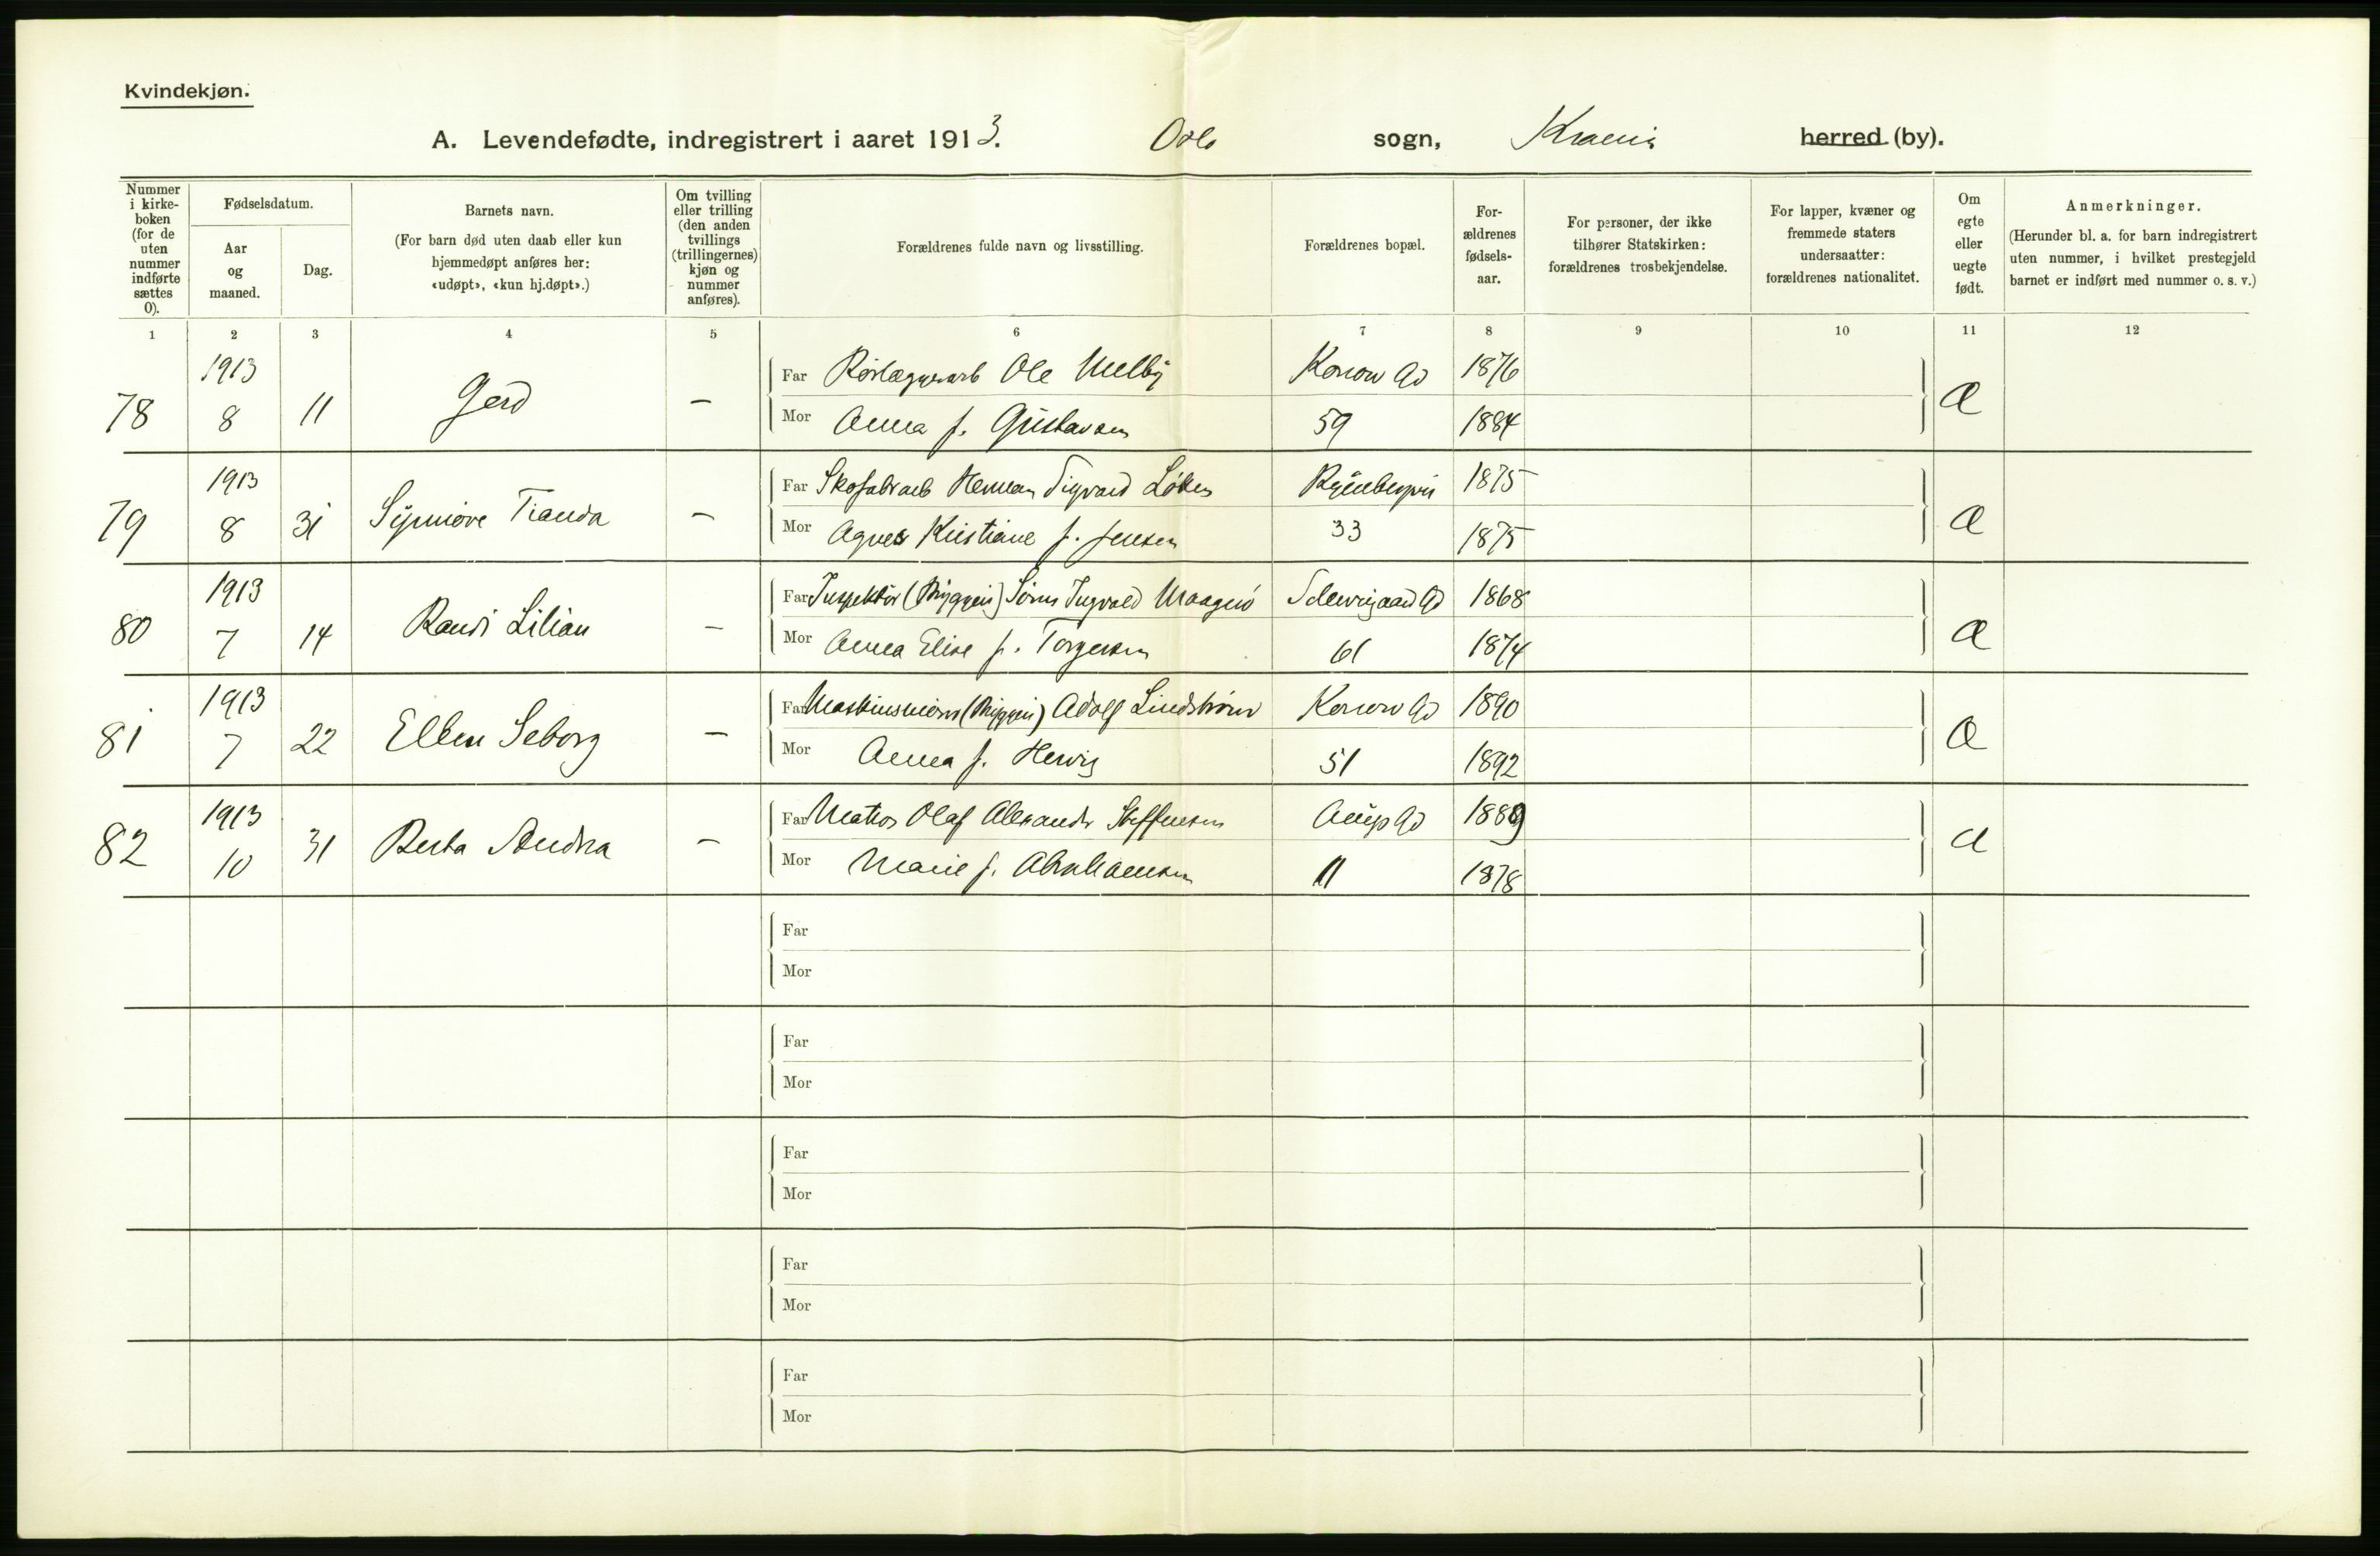 Kvindekjøn.
A. Levendefødte, indregistrert i aaret 1913. Oslo sogn, Krania herred (by).
Nummer i kirke-boken (for de uten nummer indførte sættes 0).
Fødselsdatum.
Aar og maaned.
Dag.
Barnets navn.
(For barn død uten daab eller kun hjemmedøpt anføres her: «udøpt», «kun hj.døpt».)
Om tvilling eller trilling (den anden tvillings (trillingernes) kjøn og nummer anføres).
Forældrenes fulde navn og livsstilling.
Forældrenes bopæl.
For-ældrenes fødsels-aar.
For personer, der ikke tilhører Statskirken: forældrenes trosbekjendelse.
For lapper, kvæner og fremmede staters undersaatter: forældrenes nationalitet.
Om egte eller uegte født.
Anmerkninger.
(Herunder bl. a. for barn indregistrert uten nummer, i hvilket prestegjeld barnet er indført med nummer o. s. v.)
1 2 3 4 5 6 7 8 9 10 11 12
78 1913 8 11 Gerd — Far Rørlæggerarb Ole Melby Konow Gd 1876 Æ
Mor Anna f. Gustavsen 59 1884
79 1913 8 31 Synnøve — Far Skofabrarb Herman Sigvard Løken 1875 Æ
Mor Agnes Kristiane f. Jensen 33 1875
80 1913 7 14 Randi Lilian — Far Inspektør (Bryggeri) Søren Ingvald Schweigaard Gd 1868 Æ
Mor Anna Elise f. Torgersen 61 1874
81 1913 7 22 Ellen Seborg — Far (Bryggeri) Adolf Lindstrøm Konow Gd 1890 Æ
Mor Anna f. Hervig 51 1892
82 1913 10 31 Berta Andrea — Far Matros Olaf Alexander Steffensen Arups Gd 1889 Æ
Mor Marie f. Abrahamsen 11 1878
Far
Mor
Far
Mor
Far
Mor
Far
Mor
Far
Mor